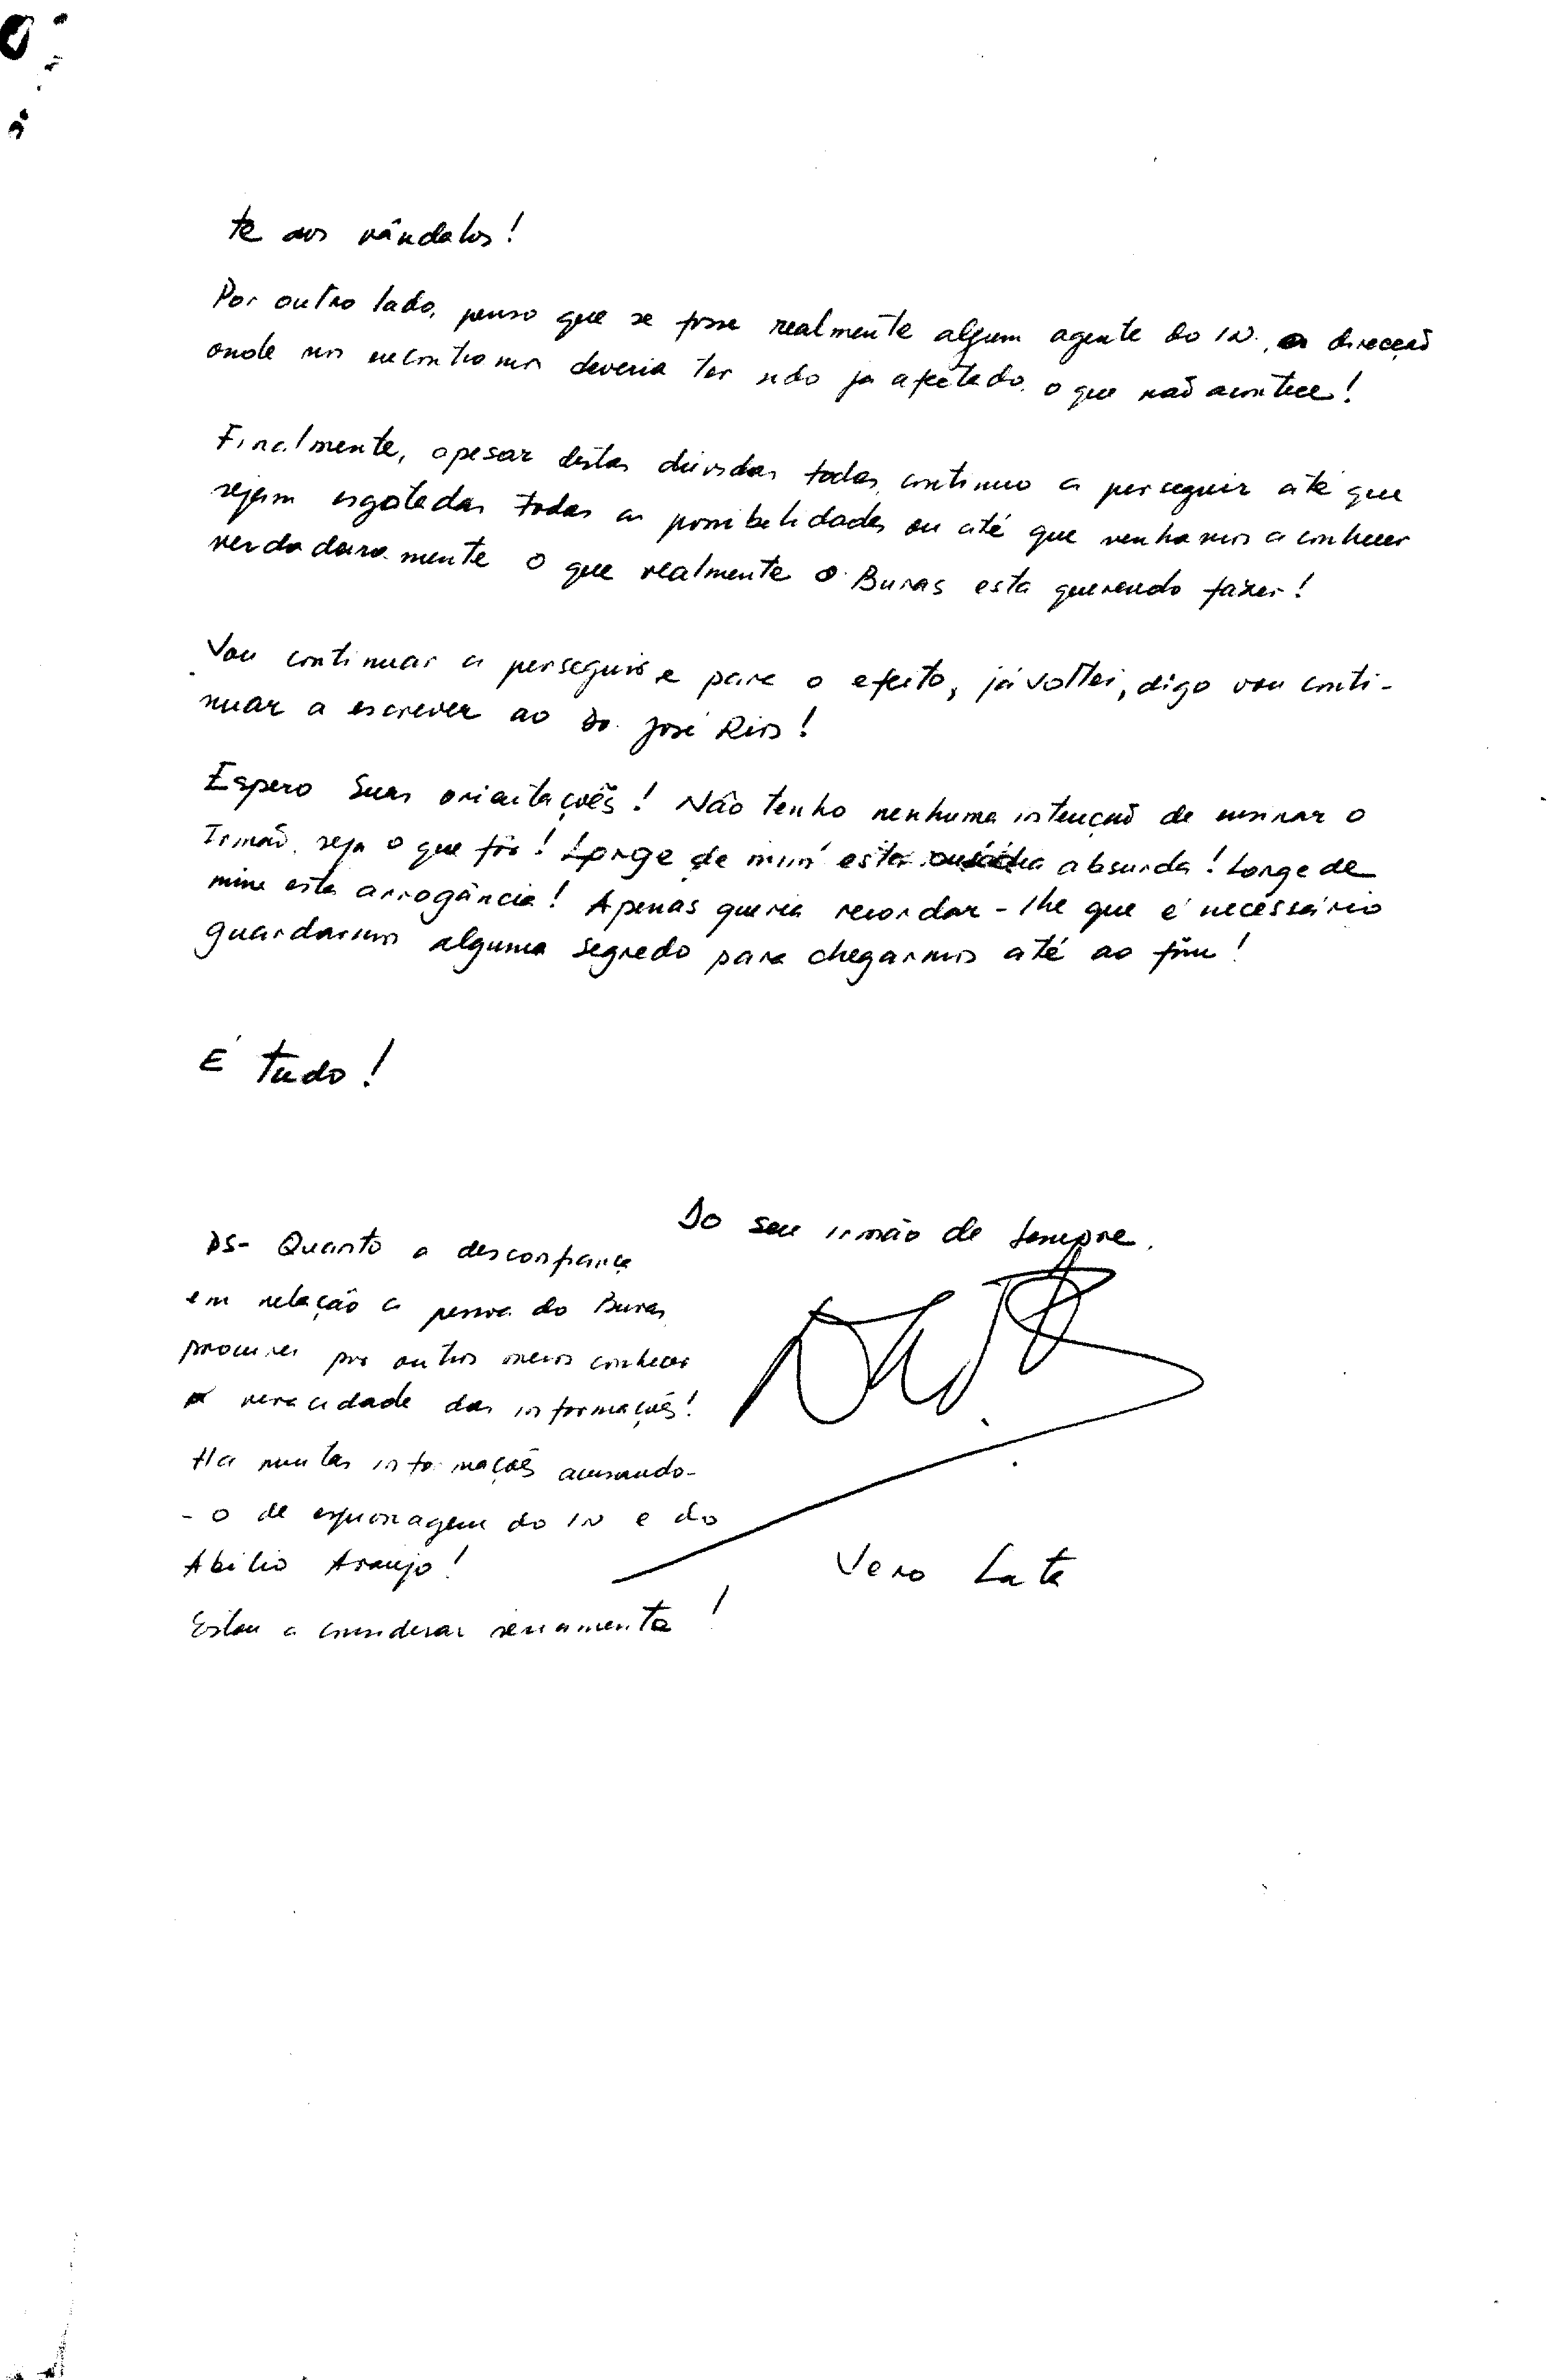 te aos vândalos!
Por outro lado, penso que se fosse realmente algum agente do IN., a direcção
onde nos encontramos deveria ter sido já afectado, o que não acontece!
Finalmente, apesar destas dúvidas todas, continuo a perseguir até que
sejam esgotadas todas as possibilidades ou até que venhamos a conhecer
verdadeiramente o que realmente o Buras esta querendo fazer!
Vou continuar a perseguir e para o efeito, já voltei, digo vou conti-
nuar a escrever ao Do José Rios!
Espero Suas orientações! Não tenho nenhuma intenção de ensinar o
Irmão, seja o que fôr! Longe de mim esta absurda! Longe de
mim esta arrogância! Apenas queria recordar-lhe que é necessário
guardarmos alguma segredo para chegarmos até ao fim!
É tudo!
Do seu irmão de sempre.
PS- Quanto a desconfiança
em relação a pessoa do Buras,
procurei por outros meios conhecer
a veracidade das informações!
Ha muitas informações acusando-
-o de espionagem do IN e do
Abilio Araujo!
Estou a considerar seriamente!
Vero Lata